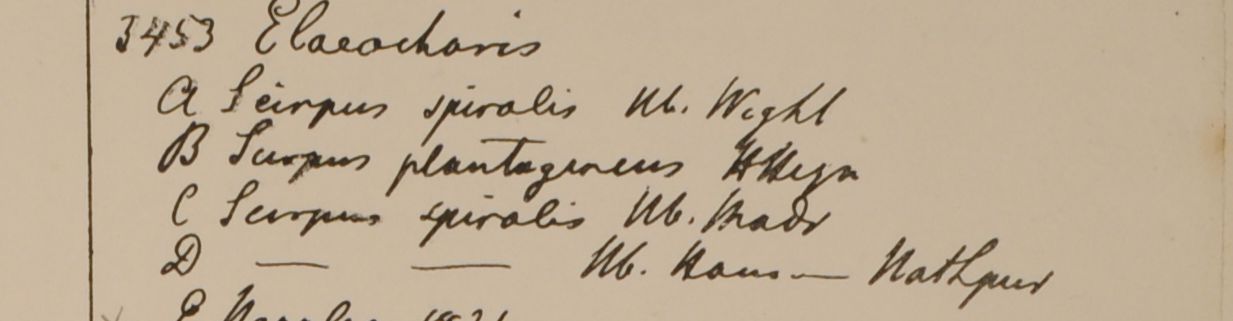 3453 Elaeocharis
A Scirpus spiralis Hb. Wight
B Scirpus plantagineus HHeyn
C Scirpus spiralis Hb. Madr
D — — Hb. Ham — Nathpur
E